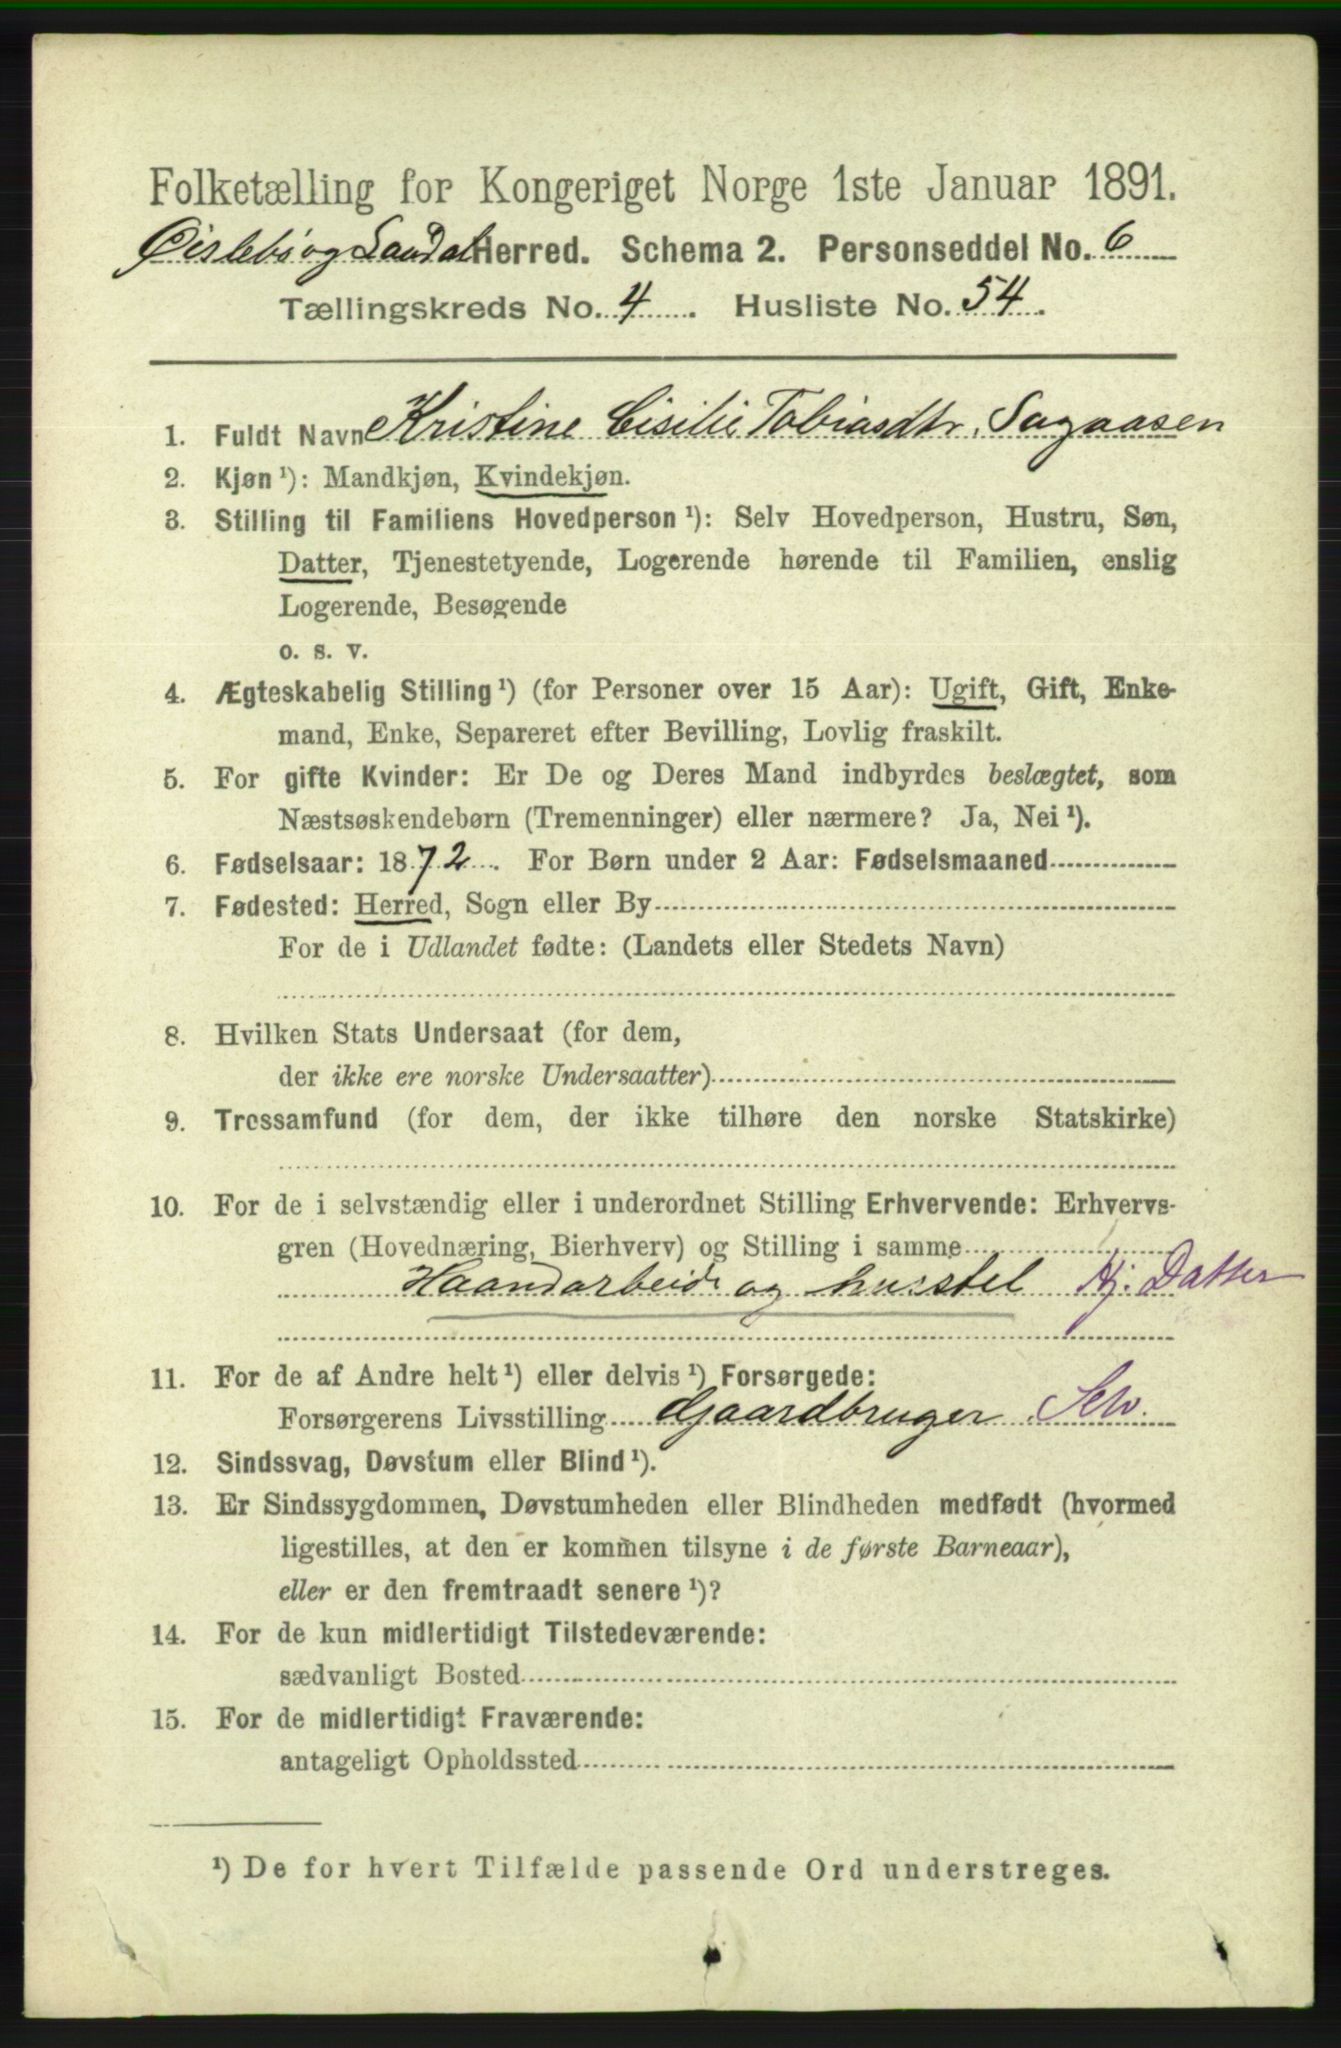 Folketælling for Kongeriget Norge 1ste Januar 1891.
Øislebø og Laudal Herred. Schema 2. Personseddel No. 6
Tællingskreds No. 4. Husliste No. 54.
1. Fuldt Navn Kristine Cisilie Tobiasdtr. Sagaasen
2. Kjøn ¹): Mandkjøn, Kvindekjøn.
3. Stilling til Familiens Hovedperson ¹): Selv Hovedperson, Hustru, Søn,
Datter, Tjenestetyende, Logerende hørende til Familien, enslig
Logerende, Besøgende
o. s. v.
4. Ægteskabelig Stilling ¹) (for Personer over 15 Aar): Ugift, Gift, Enke-
mand, Enke, Separeret efter Bevilling, Lovlig fraskilt.
5. For gifte Kvinder: Er De og Deres Mand indbyrdes beslægtet, som
Næstsøskendebørn (Tremenninger) eller nærmere? Ja, Nei ¹).
6. Fødselsaar: 1872. For Børn under 2 Aar: Fødselsmaaned
7. Fødested: Herred, Sogn eller By
For de i Udlandet fødte: (Landets eller Stedets Navn)
8. Hvilken Stats Undersaat (for dem,
der ikke ere norske Undersaatter)
9. Trossamfund (for dem, der ikke tilhøre den norske Statskirke)
10. For de i selvstændig eller i underordnet Stilling Erhvervende: Erhvervs-
gren (Hovednæring, Bierhverv) og Stilling i samme
Haandarbeide og husstel Hj. Datter
11. For de af Andre helt ¹) eller delvis ¹) Forsørgede:
Forsørgerens Livsstilling Gaardbruger Selv.
12. Sindssvag, Døvstum eller Blind ¹).
13. Er Sindssygdommen, Døvstumheden eller Blindheden medfødt (hvormed
ligestilles, at den er kommen tilsyne i de første Barneaar),
eller er den fremtraadt senere ¹)?
14. For de kun midlertidigt Tilstedeværende:
sædvanligt Bosted
15. For de midlertidigt Fraværende:
antageligt Opholdssted
¹) De for hvert Tilfælde passende Ord understreges.